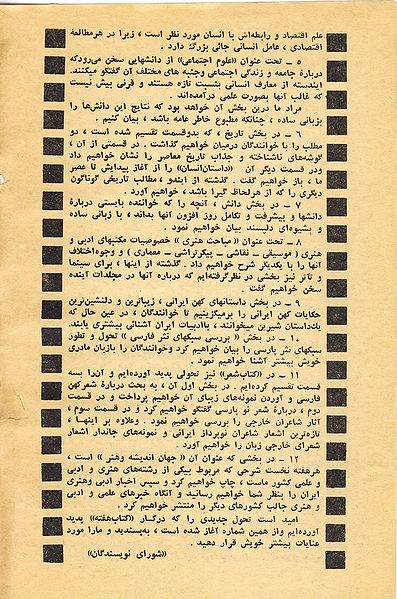 علم اقتصاد و رابطه‌اش با انسان مورد نظر است ، زیرا در هر مطالعهٔ
اقتصادی ، عامل انسانی جائی بزرگ دارد .
۵ ـ تحت عنوان «علوم اجتماعی» از دانشهایی سخن می‌رود که
دربارهٔ جامعه و زندگی اجتماعی و جنبه های مختلف آن گفتگو میکنند.
ایندسته از معارف انسانی بنسبت تازه هستند و قرنی بیش نیست
که غالب آنها بصورت علمی درآمده‌اند.
مراد ما در این بخش آن خواهد بود که نتایج این دانش‌ها را
بزبانی ساده ، چنانکه مطبوع خاطر عامه باشد ، بیان کنیم .
۶ ـ در بخش تاریخ ، که بدو قسمت تقسیم شده است ، دو
مطلب را با خوانندگان در میان خواهیم گذاشت . در قسمتی از آن ،
گوشه‌های ناشناخته و جذاب تاریخ معاصر را نشان خواهیم داد
و در قسمت دیگر آن «داستان انسان» را از آغاز پیدایش تا عصر
ما ، باز خواهیم گفت . گذشته از ایندو ، مطالب تاریخی گوناگون
دیگری را که از هر لحاظ گیرا باشد ، خواهیم آورد .
۷ ـ در بخش دانش ، آنچه را که خواننده بایستی دربارهٔ
دانشها و پیشرفت و تکامل روز افزون آنها بداند ، با زبانی ساده
و بشیوه‌ای دلپسند بیان خواهیم نمود .
۸ ـ تحت عنوان « مباحث هنری » خصوصیات مکتبهای ادبی و
هنری ( موسیقی ـ نقاشی ـ پیکرتراشی ـ معماری ) و وجوه اختلاف
آنها را با یکدیگر شرح خواهیم داد. گذشته از اینها ، برای سینما
و تاتر نیز بخشی در نظر گرفته‌ایم که درباره آنها در مجلدات آینده
سخن خواهیم گفت .
۹ ـ در بخش داستانهای کهن ایرانی ، زیباترین و دلنشین‌ترین
حکایات کهن ایرانی را برمیگزینیم تا خوانندگان ، در عین حال که
یک داستان شیرین میخوانند ، با ادبیات ایران آشنائی بیشتری یابند.
۱۰ ـ در بخش « بررسی سبکهای نثر فارسی » تحول و تطور
سبکهای نثر پارسی را بیان خواهیم کرد و خوانندگان را بازبان مادری
خویش بیشتر آشنا خواهیم نمود .
۱۱ ـ در «کتاب شعر» نیز تحولی پدید آورده‌ایم و آن را بسه
قسمت تقسیم کرده‌ایم . در بخش اول آن ، به بحث دربارهٔ شعر کهن
فارسی و آوردن نمونه‌های زیبای آن خواهیم پرداخت و در قسمت
دوم ، دربارهٔ شعر نو پارسی گفتگو خواهیم کرد و در قسمت سوم ،
آثار شاعران خارجی را بررسی خواهیم نمود . وعلاوه بر اینهـا ،
تازه‌ترین اشعار شاعران نوپرداز ایرانی و نمونه‌های جاندار اشعار
شعرای خارجی زبان را خواهیم آورد .
۱۲ ـ در بخشی که عنوان آن « جهان اندیشه وهنر » است ،
هر هفته نخست شرحی که مربوط بیکی از رشته‌های هنری و ادبی
و علمی کشور ماست ، چاپ خواهیم کرد و سپس اخبار ادبی وهنری
ایران را بنظر شما خواهیم رسانید و آنگاه خبرهای علمی و ادبی
و هنری جالب کشورهای دیگر را منتشر خواهیم کرد .
امید است تحول جدیدی را که در کار «کتاب هفته» پدید
آورده‌ایم و از همین شماره آغاز شده است ، به‌پسندید و ما را مورد
عنایات بیشتر خویش قرار دهید .
«شورای نویسندگان»